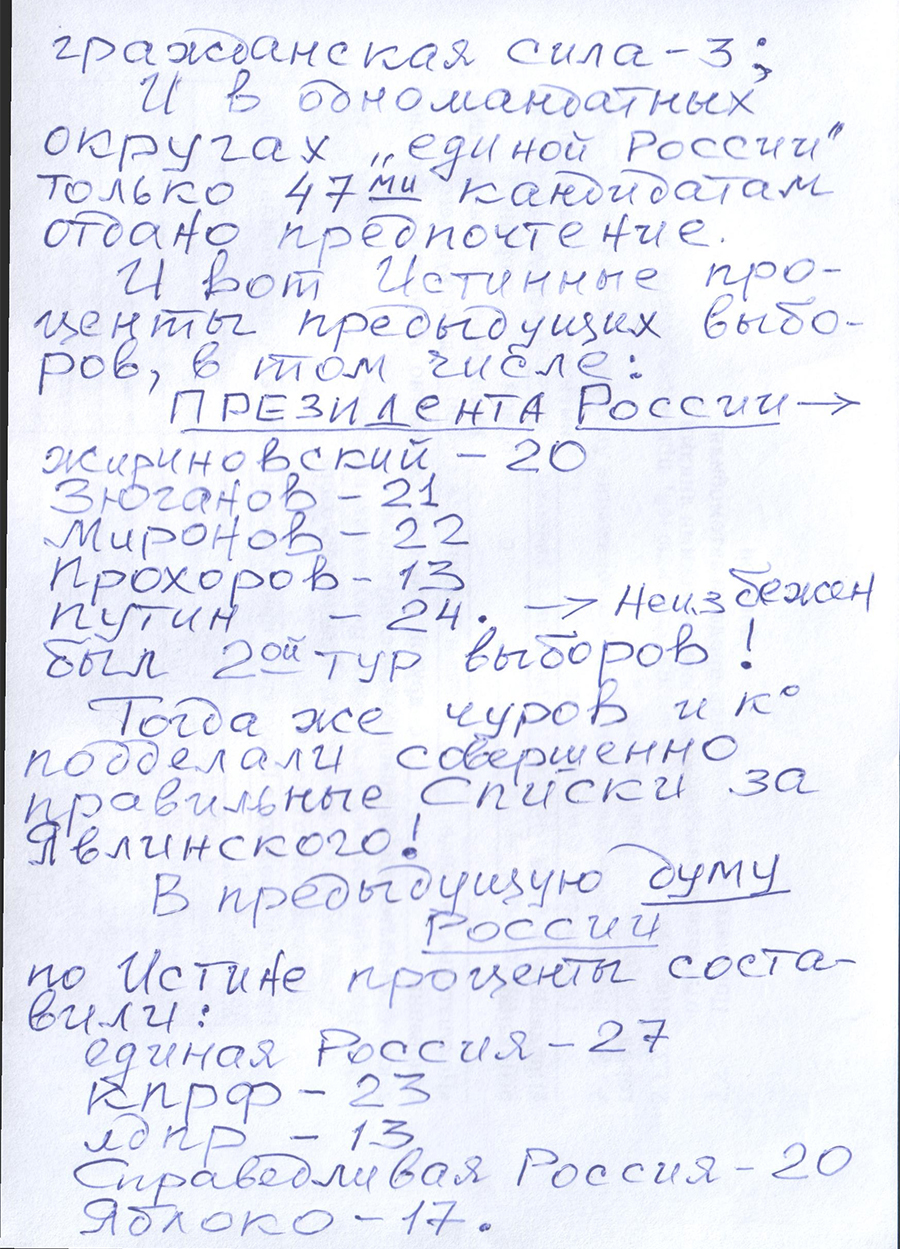 гражданская сила - 3;
И в одномандатных
округах „единой России"
только 47ми кандидатам
отдано предпочтение.
И вот Истинные про-
центы предыдущих выбо-
ров, в том числе:
ПРЕЗИДЕНТА России →
жириновский - 20
Зюганов - 21
Миронов - 22
Прохоров - 13
Путин - 24. → Неизбежен
был 2ой тур выборов!
Тогда же чуров и К°
подделали совершенно
правильные Списки за
Явлинского!
В предыдущую думу
России
по Истине проценты соста-
вили:
единая Россия - 27
кпрф - 23
лдпр - 13
Справедливая Россия - 20
Яблоко - 17.